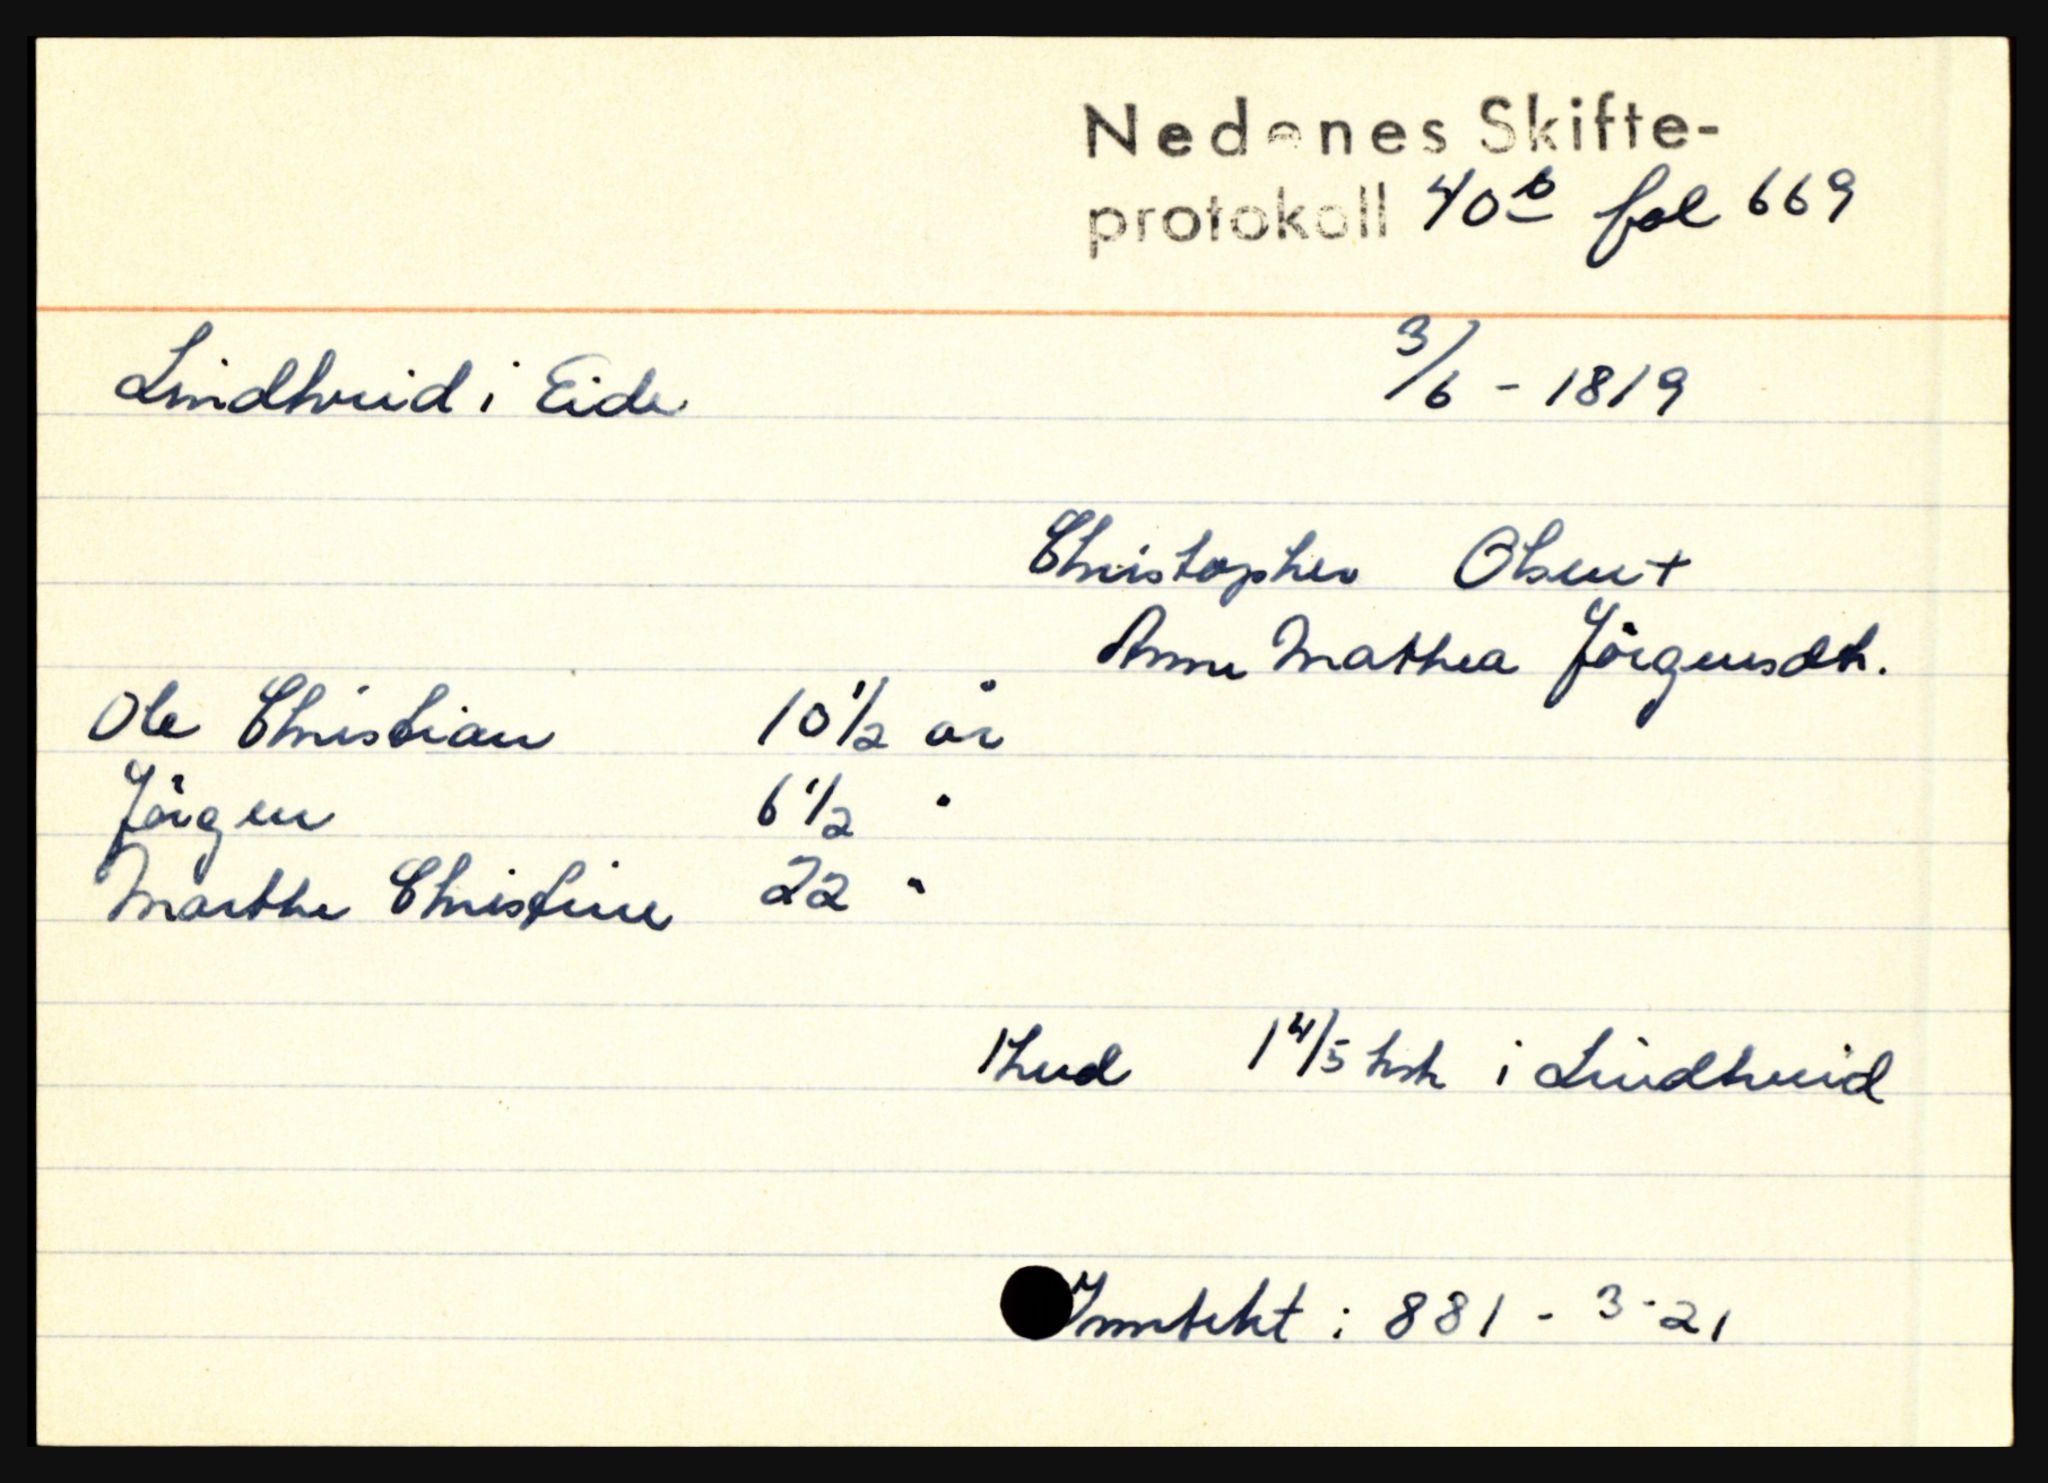 Nedenes Skifte-
protokoll 40b fol 669
Lindtveid i Eide 3/6 - 1819
Christopher Olsen +
Anne Mathea Jörgensdtr.
Ole Christian 10 1/2 år
Jörgen 6 1/2 "
Marthe Christine 22 "
1 hud 1 4/5 hsk i Lindtveid
Inntekt : 881 - 3 - 21